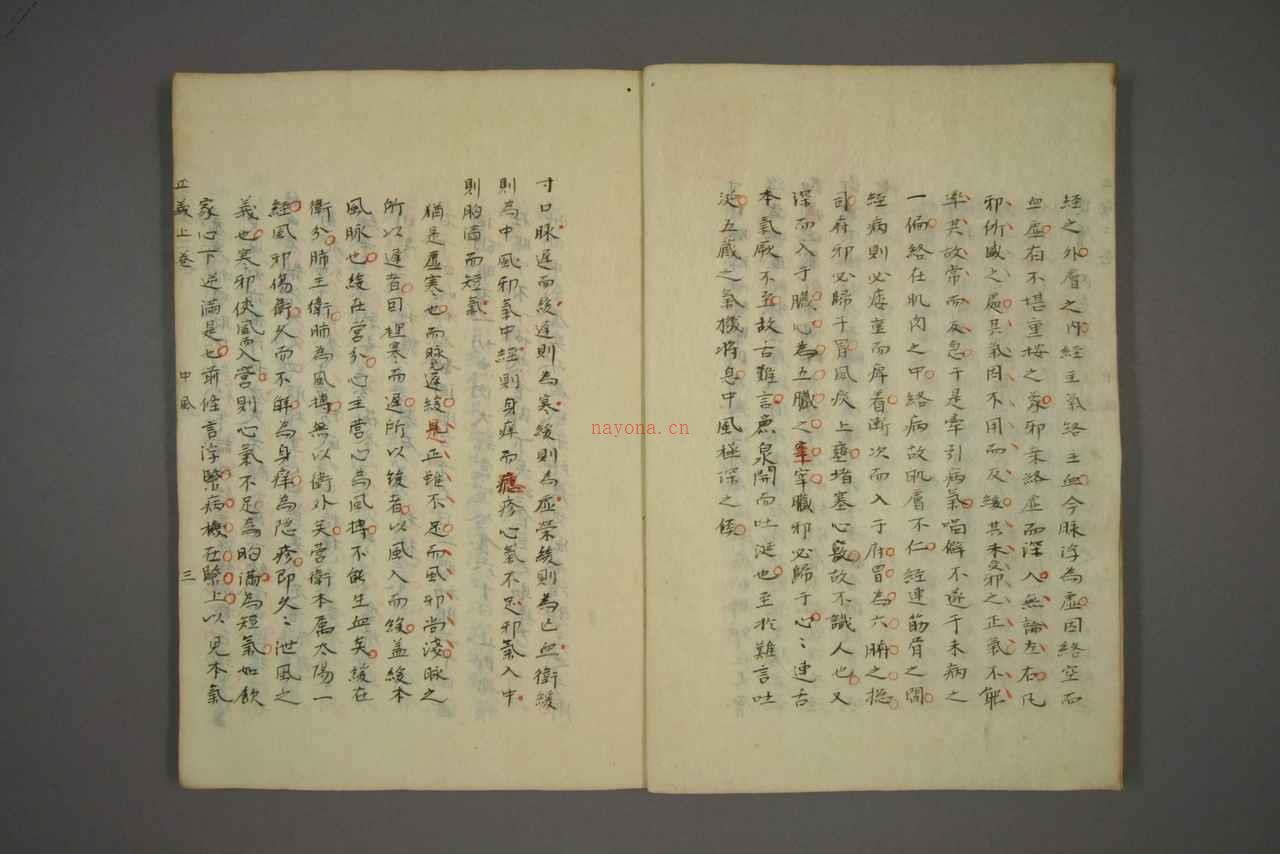 經之外層之內經主氣絡主血今脉浮為虛因絡空而
血虛在不堪重按之象邪乘絡虛而深入無論左右凡
邪所感之處其氣因不用而反緩其未受邪之正氣不能
率其故常而反急于是牽引病氣喎僻不遂于未病之
一偏絡在肌肉之中絡病故肌膚不仁經連筋骨之間
經病則必痿重而屏着漸次而入于府胃為六腑之總
司府邪必歸于胃風痰上壅堵塞心竅故不識人也又
深而入于臟心為五臟之主宰臟邪必歸于心〻連舌
本氣厥不至故舌難言廉泉開而吐涎也至於難言吐
涎五藏之氣機將息中風極深之候
寸口脉遲而緩遲則為寒緩則為虛榮緩則為亡血衛緩
則為中風邪氣中經則身痒而癮疹心氣不足邪氣入中
則胸滿而短氣
猶是虛寒也而脉遲緩是正雖不足而風邪尚淺脉之
所以遲者因裡寒而遲所以緩者以風入而緩蓋緩本
風脉也緩在營分心主營心為風搏不能生血矣緩在
衛分肺主衛肺為風搏無以衛外矣營衛本屬太陽一
經風邪傷衛久而不解為身痒為隱疹即久〻泄風之
義也寒邪使風而入營則心氣不足為胸滿為短氣如飲
家心下逆滿是也前條言浮緊病機在緊上以見本氣
正義上卷 中風 三
nayona.cn